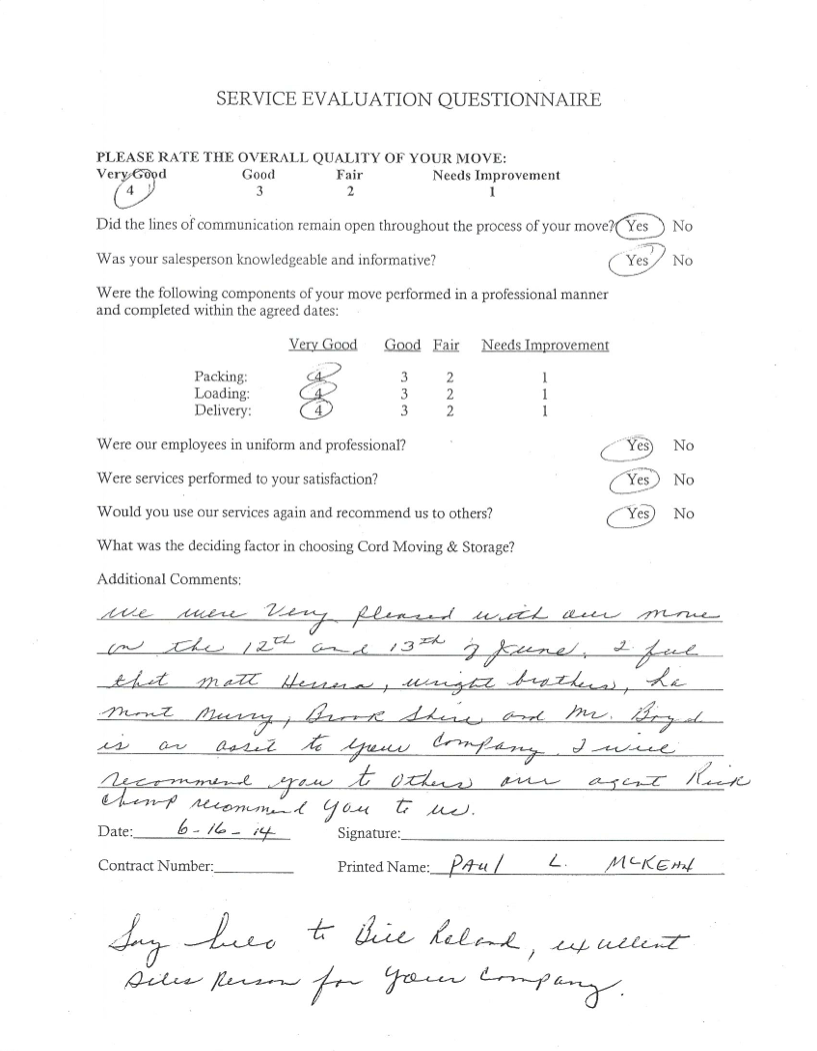 SERVICE EVALUATION QUESTIONNAIRE
PLEASE RATE THE OVERALL QUALITY OF YOUR MOVE:
Very Good Good Fair Needs Improvement
4 3 2 1
Did the lines of communication remain open throughout the process of your move? Yes No
Was your salesperson knowledgeable and informative? Yes No
Were the following components of your move performed in a professional manner
and completed within the agreed dates:
Very Good Good Fair Needs Improvement
Packing: 4 3 2 1
Loading: 4 3 2 1
Delivery: 4 3 2 1
Were our employees in uniform and professional? Yes No
Were services performed to your satisfaction? Yes No
Would you use our services again and recommend us to others? Yes No
What was the deciding factor in choosing Cord Moving & Storage?
Additional Comments:
We were Very pleased with our move
on the 12th and 13th of June. I feel
that Matt Herrera, wright brothers, La
mont Murry, Brook Shire and Mr. Boyd
is an asset to your Company I will
recommend you to others our agent Rick
recommend you to us.
Date: 6-16-14 Signature:
Contract Number: Printed Name: PAul L. McKEAN
Say hello to Bill Roland, excellent
Sales Person for your Company.